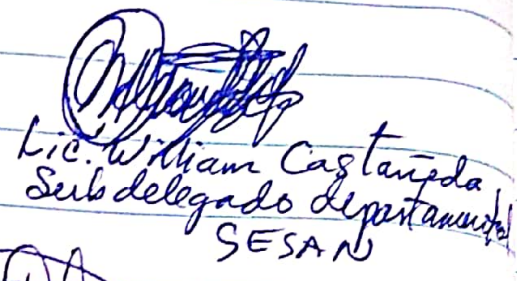 Lic. William Castañeda
Subdelegado departamental
SESAN